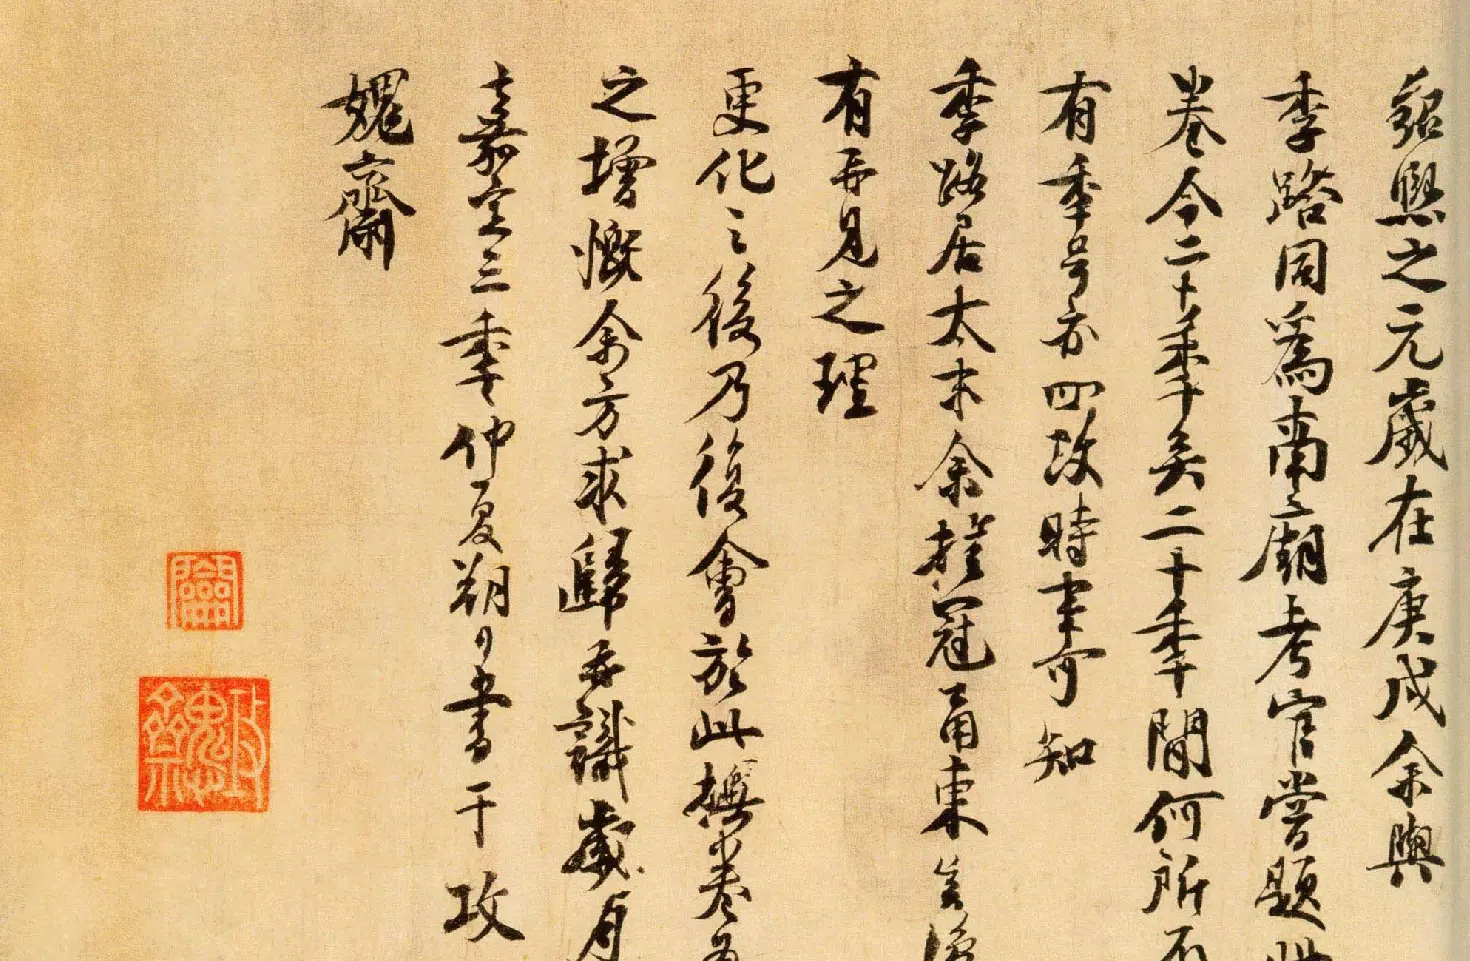 紹熙之元歲在庚戌余與
季路同為南廟考官嘗題此
卷今二十年矣二十年間何所不
有年号亦四改時事可知
季路居太末余挂冠甬東豈復
有再見之理
更化之後乃復會於此撫卷為
之增慨余方求歸再識歲月
嘉定三年仲夏朔日書于攻
媿齋
攻媿齋